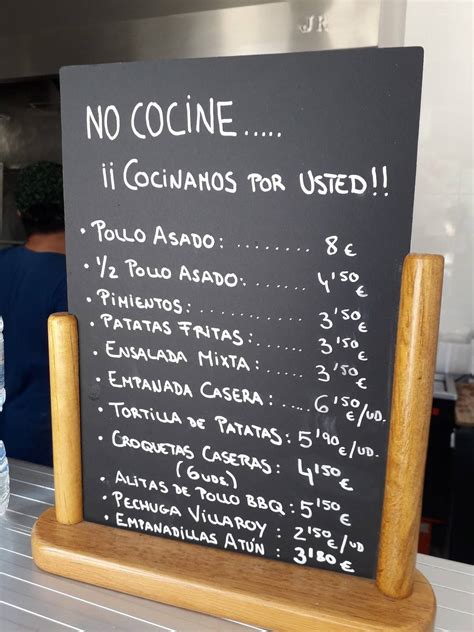 JR
NO COCINE.....
¡¡ COCINAMOS POR USTED!!
• POLLO ASADO: ......... 8 €
• 1/2 POLLO ASADO: ...... 4'50 €
• PIMIENTOS: ............ 3'50 €
• PATATAS FRITAS: ...... 3'50 €
• ENSALADA MIXTA: ..... 3'50 €
• EMPANADA CASERA: .... 6'50 €/UD.
• TORTILLA DE PATATAS: 5'90 €/UD.
• CROQUETAS CASERAS: 4'50 €
(6 UDS)
• ALITAS DE POLLO BBQ: 5'50 €
• PECHUGA VILLAROY: 2'50 €/UD
• EMPANADILLAS ATÚN: 3'80 €